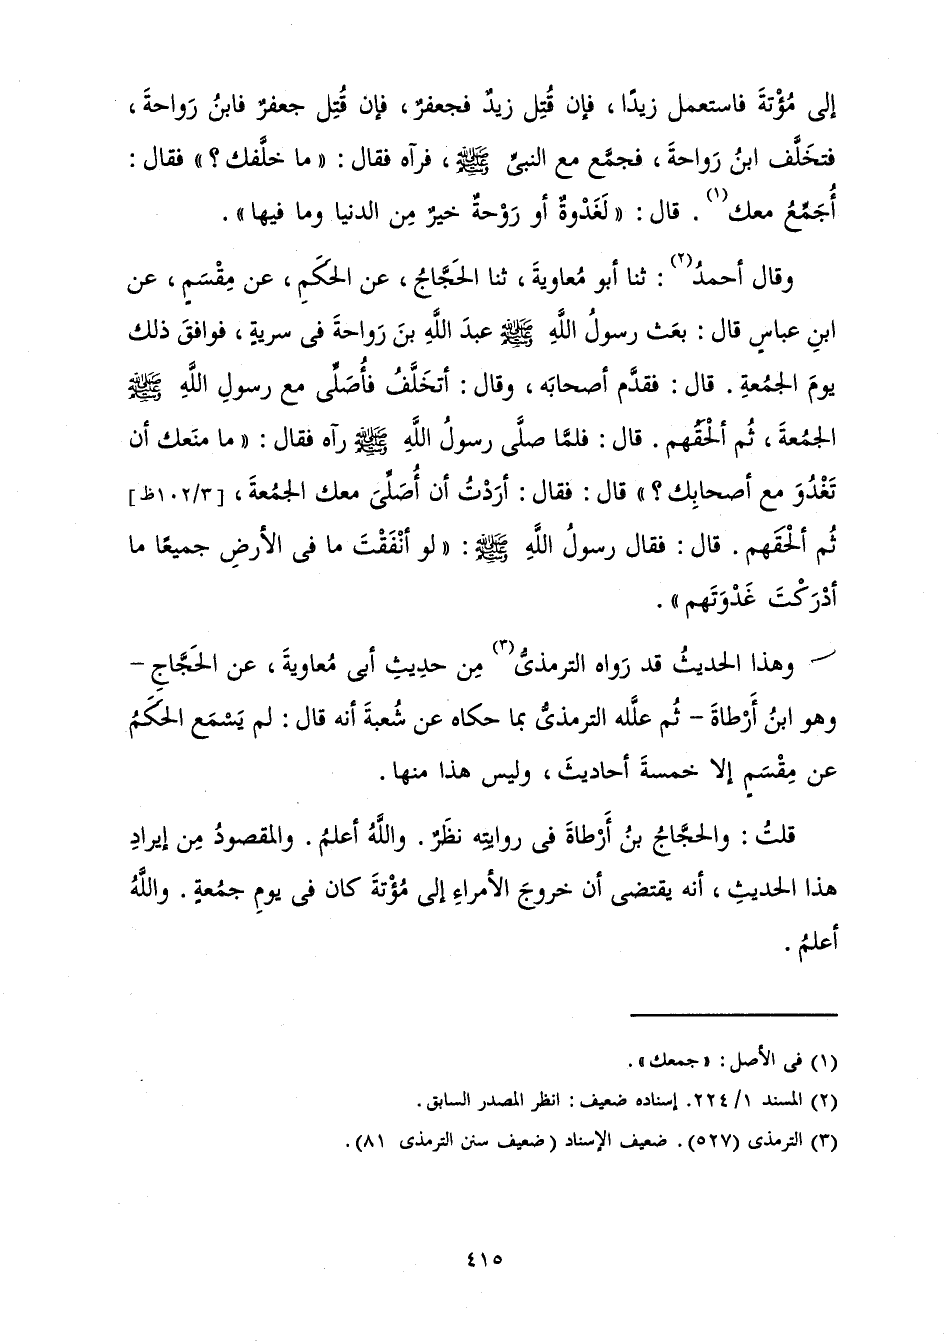 إلى مُؤْتةَ فاستعمل زيدًا ، فإن قُتِل زيدٌ فجعفرٌ ، فإن قُتِل جعفرٌ فابنُ رَواحةَ ،
فتخَلَّف ابنُ رَواحةَ ، فجمَّع مع النبىِّ ﷺ ، فرآه فقال : « ما خلَّفك ؟ » فقال :
أُجَمِّعُ معك(١) . قال : « لَغَدْوةٌ أو رَوْحةٌ خيرٌ مِن الدنيا وما فيها » .
وقال أحمدُ(٢) : ثنا أبو مُعاويةَ ، ثنا الحَجَّاجُ ، عن الحكَمِ ، عن مِقْسَمٍ ، عن
ابنِ عباسٍ قال : بعَث رسولُ اللَّهِ ﷺ عبدَ اللَّهِ بنَ رَواحةَ فى سريةٍ ، فوافقَ ذلك
يومَ الجمُعةِ . قال : فقدَّم أصحابَه ، وقال : أتخَلَّفُ فأُصَلِّى مع رسولِ اللَّهِ ﷺ
الجمُعةَ ، ثُم ألْحَقُهم . قال : فلمَّا صلَّى رسولُ اللَّهِ ﷺ رآه فقال : « ما منَعك أن
تَغْدُوَ مع أصحابِك ؟ » قال : فقال : أرَدْتُ أن أُصَلِّىَ معك الجمُعةَ ، [١٠٢/٣ظ]
ثُم ألْحَقَهم . قال : فقال رسولُ اللَّهِ ﷺ : « لو أنْفَقْتَ ما فى الأرضِ جميعًا ما
أدْرَكْتَ غَدْوَتَهم » .
وهذا الحديثُ قد رَواه الترمذىُّ(٣) مِن حديثِ أبى مُعاويةَ ، عن الحَجَّاجِ –
وهو ابنُ أَرْطاةَ – ثُم علَّله الترمذىُّ بما حكاه عن شُعبةَ أنه قال : لم يَسْمَعِ الحكَمُ
عن مِقْسَمٍ إلا خمسةَ أحاديثَ ، وليس هذا منها .
قلتُ : والحجَّاجُ بنُ أَرْطاةَ فى روايتِه نظَرٌ . واللَّهُ أعلمُ . والمقصودُ مِن إيرادِ
هذا الحديثِ ، أنه يقتضى أن خروجَ الأمراءِ إلى مُؤْتةَ كان فى يومِ جمُعةٍ . واللَّهُ
أعلمُ .
(١) فى الأصل : « جمعك » .
(٢) المسند ١/ ٢٢٤. إسناده ضعيف : انظر المصدر السابق .
(٣) الترمذى (٥٢٧) . ضعيف الإسناد ( ضعيف سنن الترمذى ٨١) .
٤١٥